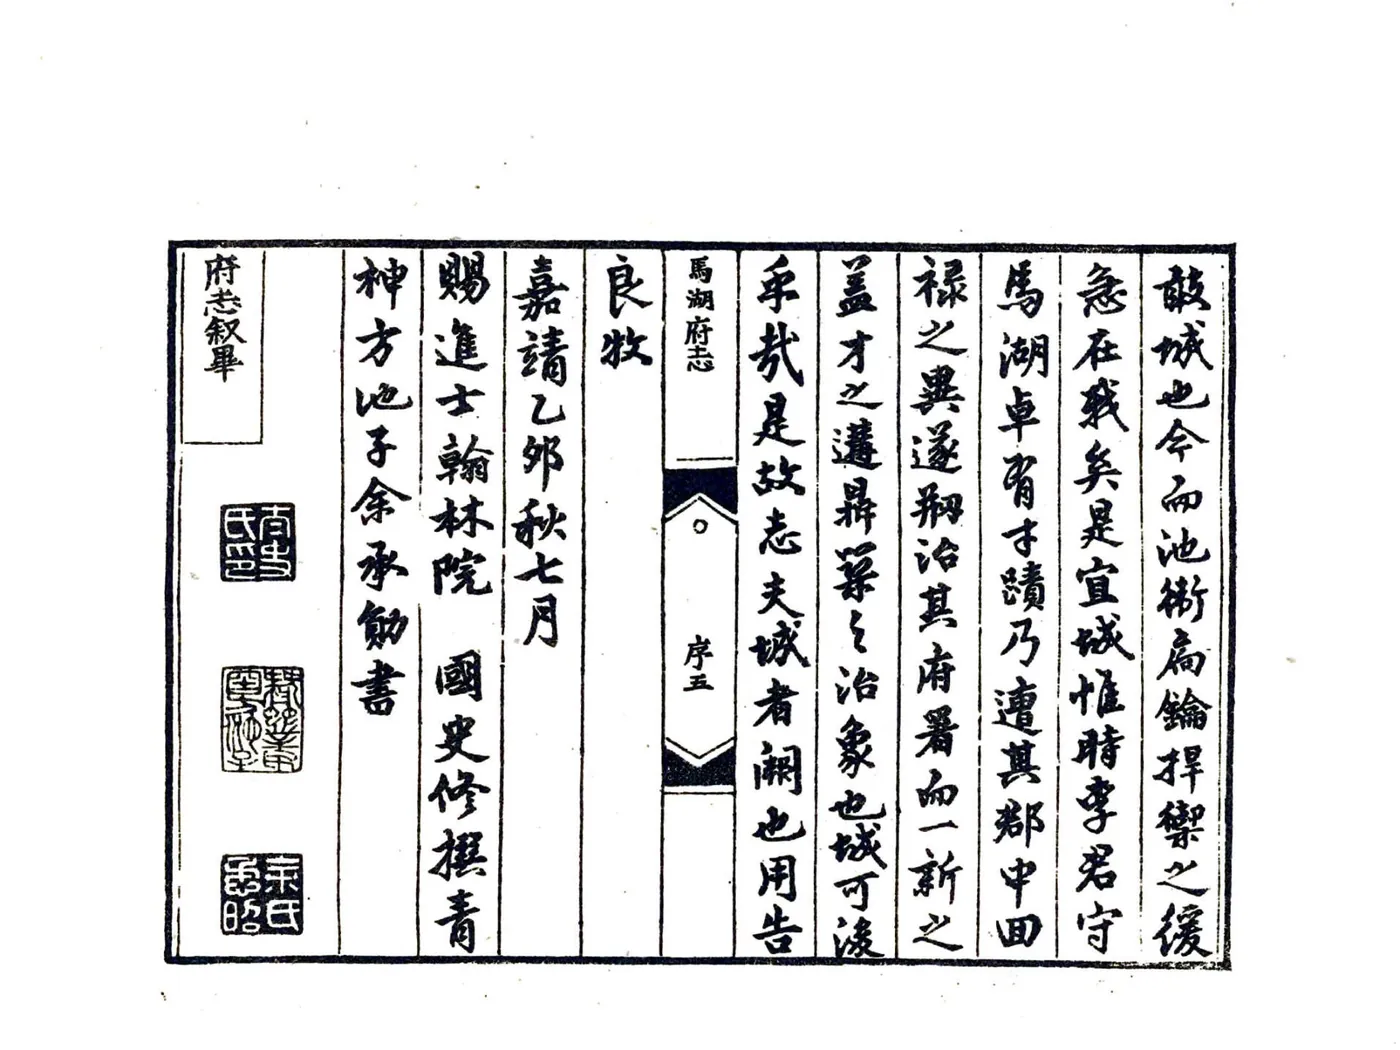 敢城也今而池衛扃鑰捍禦之緩
急在我矣是宜城惟時李君守
馬湖卓有才蹟乃遭其郡中回
祿之異遂刱治其府署而一新之
蓋才之遘鼎築之治象也城可後
乎哉是故志夫城者闕也用告
馬湖府志
序五
良牧
嘉靖乙卯秋七月
賜進士翰林院 國史修撰青
神方池子余承勛書
府志叙畢
太史氏印
余氏懋昭